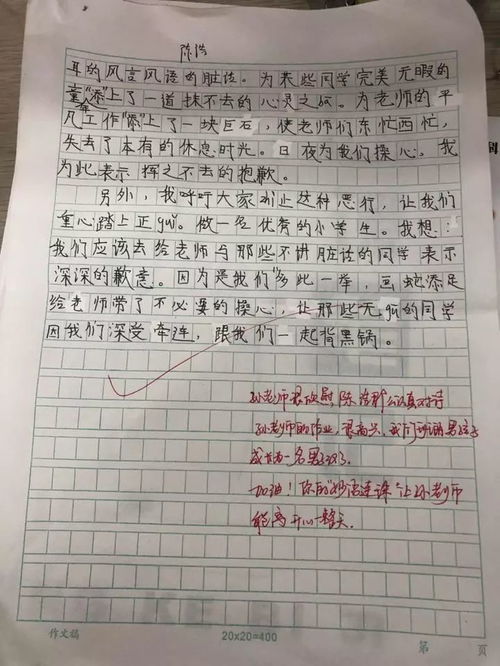 陈浩
耳的风言风语的脏话。为某些同学完美无暇的
童"添"上了一道抹不去的心灵之灰。为老师的平
凡工作"添"上了一块巨石，使老师们东忙西忙，
失去了本有的休息时光。日夜为我们操心，我
为此表示挥之不去的抱歉。
另外，我呼吁大家制止这种恶行，让我们
重心踏上正guǐ。做一名优秀的小学生。我想：
我们应该去给老师与那些不讲脏话的同学表示
深深的歉意。因为是我们"多此一举，画蛇添足
给老师带了不必要的操心，让那些无gū的同学
因我们深受牵连，跟我们一起背黑锅。
孙老师很欣慰，陈浩能认真对待
孙老师的作业，很高兴，我们的男孩子
成长为一名男子汉了。
加油！你的"妙语连珠"让孙老师
能高开心一整天。
作文稿
20×20=400
第 页